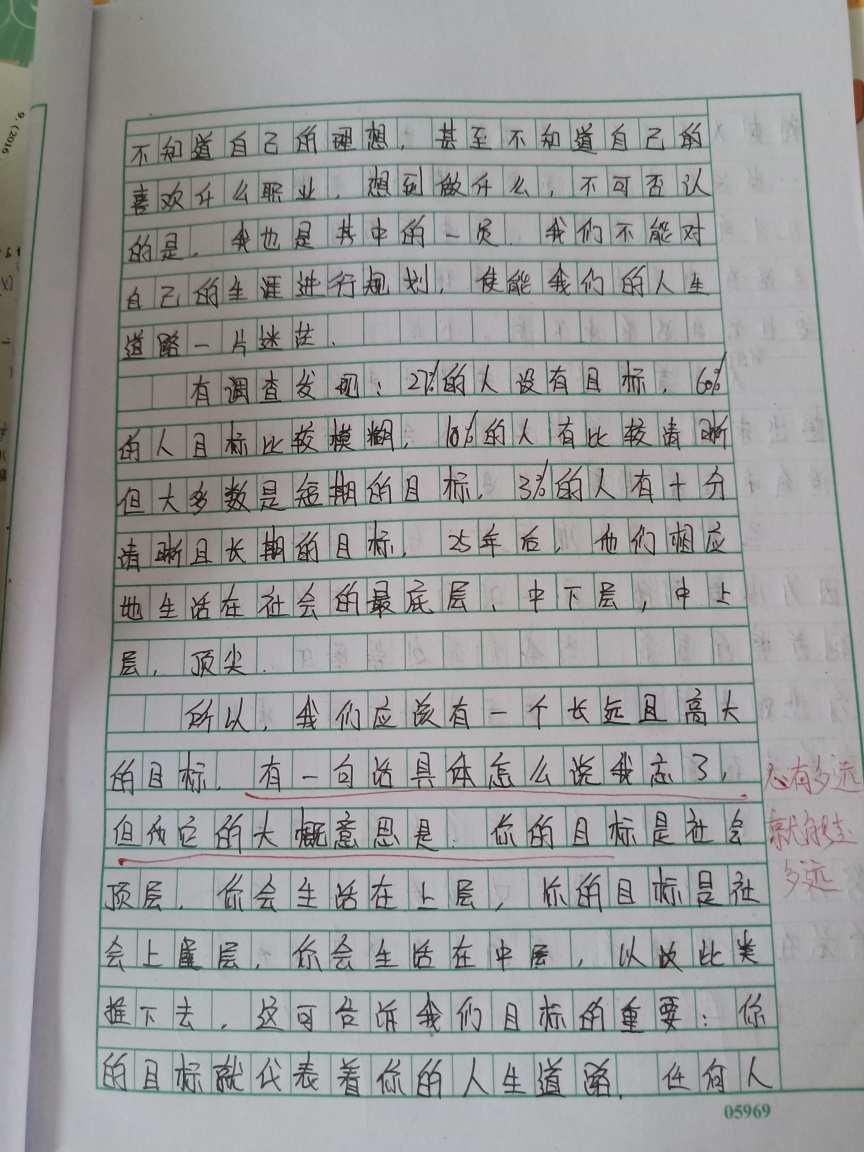 不知道自己的理想，甚至不知道自己的
喜欢什么职业，想到做什么，不可否认
的是，我也是其中的一员，我们不能对
自己的生涯进行规划，使能我们的人生
道路一片迷茫，
有调查发现：27%的人没有目标，60%
的人目标比较模糊，10%的人有比较清晰
但大多数是短期的目标，3%的人有十分
清晰且长期的目标，25年后，他们相应
地生活在社会的最底层、中下层，中上
层，顶尖.
所以，我们应该有一个长远且高大
的目标，有一句话具体怎么说我忘了，
但 它的大概意思是：你的目标是社会
顶层，你会生活在上层，你的目标是社
会上 层，你会生活在中层，以 此类
推下去，这可告诉我们目标的重要：你
的目标就代表着你的人生道路，任何人
心有多远
就能走
多远
05969
9. (2016